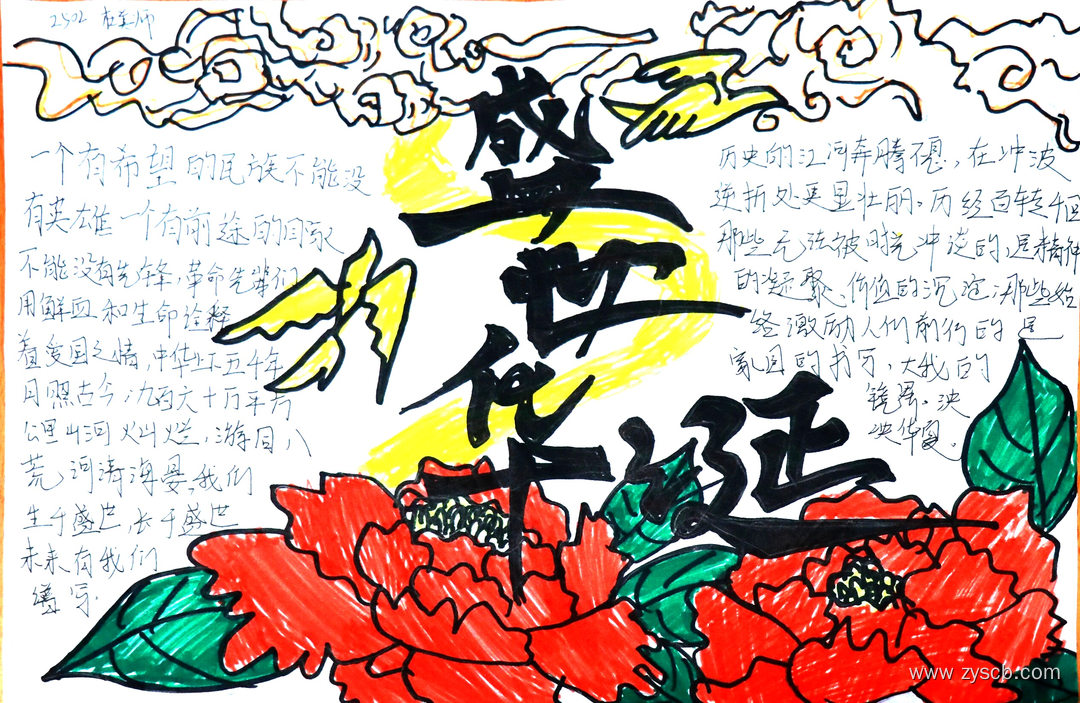 2502
盛世华诞
一个有希望的民族不能没
有英雄一个有前途的国家
不能没有先锋,革命先辈们
用鲜血和生命诠释
着爱国之情,中华上下五千年
日照古今,九百六十万平方
公里山河灿烂,游目八
荒,河涛海晏,我们
生于盛世,长于盛世
未来有我们
谱写.
历史的江河奔腾不息,在冲波
逆折处更显壮丽。历经百转千回
那些无法被时光冲淡的,是精神
的凝聚、价值的沉淀;那些始
终激励人们前行的 是
家国的书写,大我的
镜强。泱
泱华夏。
www.zyscb.com